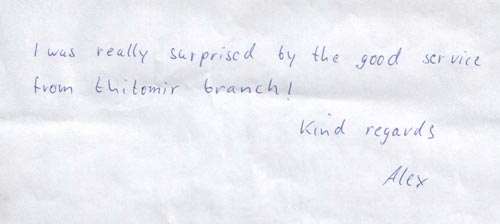 I was really surprised by the good service
from thitomir branch!
Kind regards
Alex